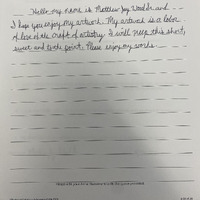 Hello, my name is Matthew Jay Wood Sr. and
I hope you enjoy my artwork. My artwork is a labor
of love of the craft of artistry. I will keep this short,
sweet and to the point. Please enjoy my works.